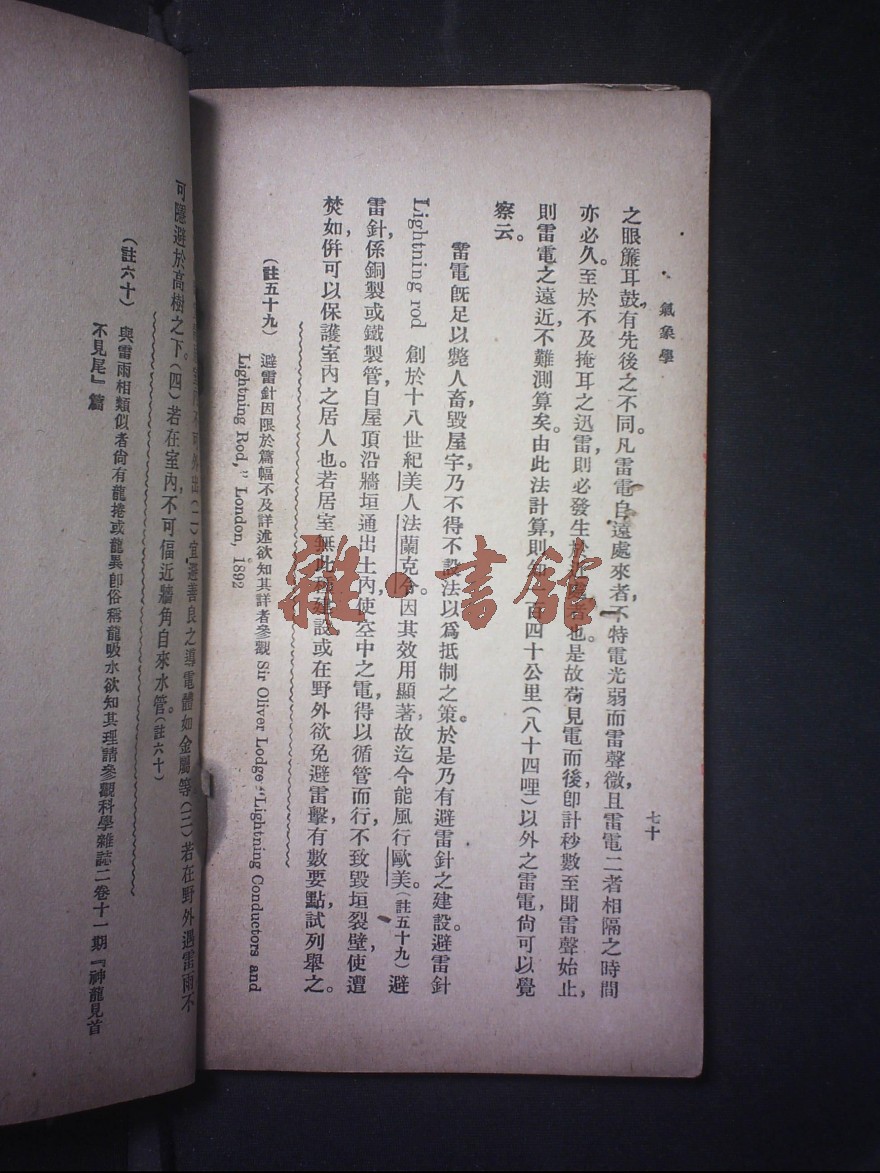 氣象學
七十
之眼簾耳鼓,有先後之不同。凡雷電自遠處來者,不特電光弱而雷聲微,且雷電二者相隔之時間
亦必久。至於不及掩耳之迅雷,則必發生於近處者也。是故苟見電而後,卽計秒數至聞雷聲始止,
則雷電之遠近,不難測算矣。由此法計算,則知一百四十公里(八十四哩)以外之雷電,尙可以覺
察云。
雷電旣足以斃人畜,毀屋宇,乃不得不設法以爲抵制之策。於是乃有避雷針之建設。避雷針
Lightning rod 創於十八世紀美人法蘭克令。因其效用顯著,故迄今能風行歐美。(註五十九)避
雷針,係銅製或鐵製管,自屋頂沿牆垣通出土內,使空中之電,得以循管而行,不致毀垣裂壁,使遭
焚如,併可以保護室內之居人也。若居室無此種建設,或在野外欲免避雷擊,有數要點,試列舉之。
(註五十九) 避雷針因限於篇幅不及詳述欲知其詳者參觀 Sir Oliver Lodge “Lightning Conductors and
Lightning Rod,” London, 1892
不可外出(二)宜避善良之導電體如金屬等(三)若在野外遇雷雨不
可隱避於高樹之下。(四)若在室內,不可偪近牆角自來水管。(註六十)
(註六十) 與雷雨相類似者尙有龍捲或龍異卽俗稱龍吸水欲知其理請參觀科學雜誌二卷十一期『神龍見首
不見尾』篇
雜·書館